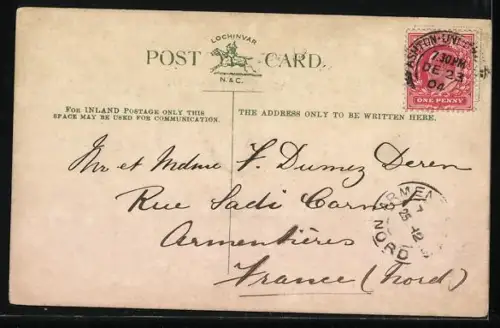 LOCHINVAR
POST CARD.
N. & C.
FOR INLAND POSTAGE ONLY THIS
SPACE MAY BE USED FOR COMMUNICATION.
THE ADDRESS ONLY TO BE WRITTEN HERE.
ASHTON-UND
7.30PM
DE 23
04
ONE PENNY
Mr et Mdme F. Dumez Deren
Rue Sadi Carnot
Armentières
France (Nord)
ARMEN
12
NORD